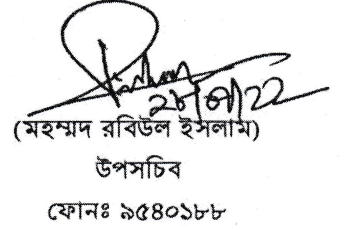 (মহম্মদ রবিউল ইসলাম)
উপসচিব
ফোনঃ ৯৫৪০১৮৮